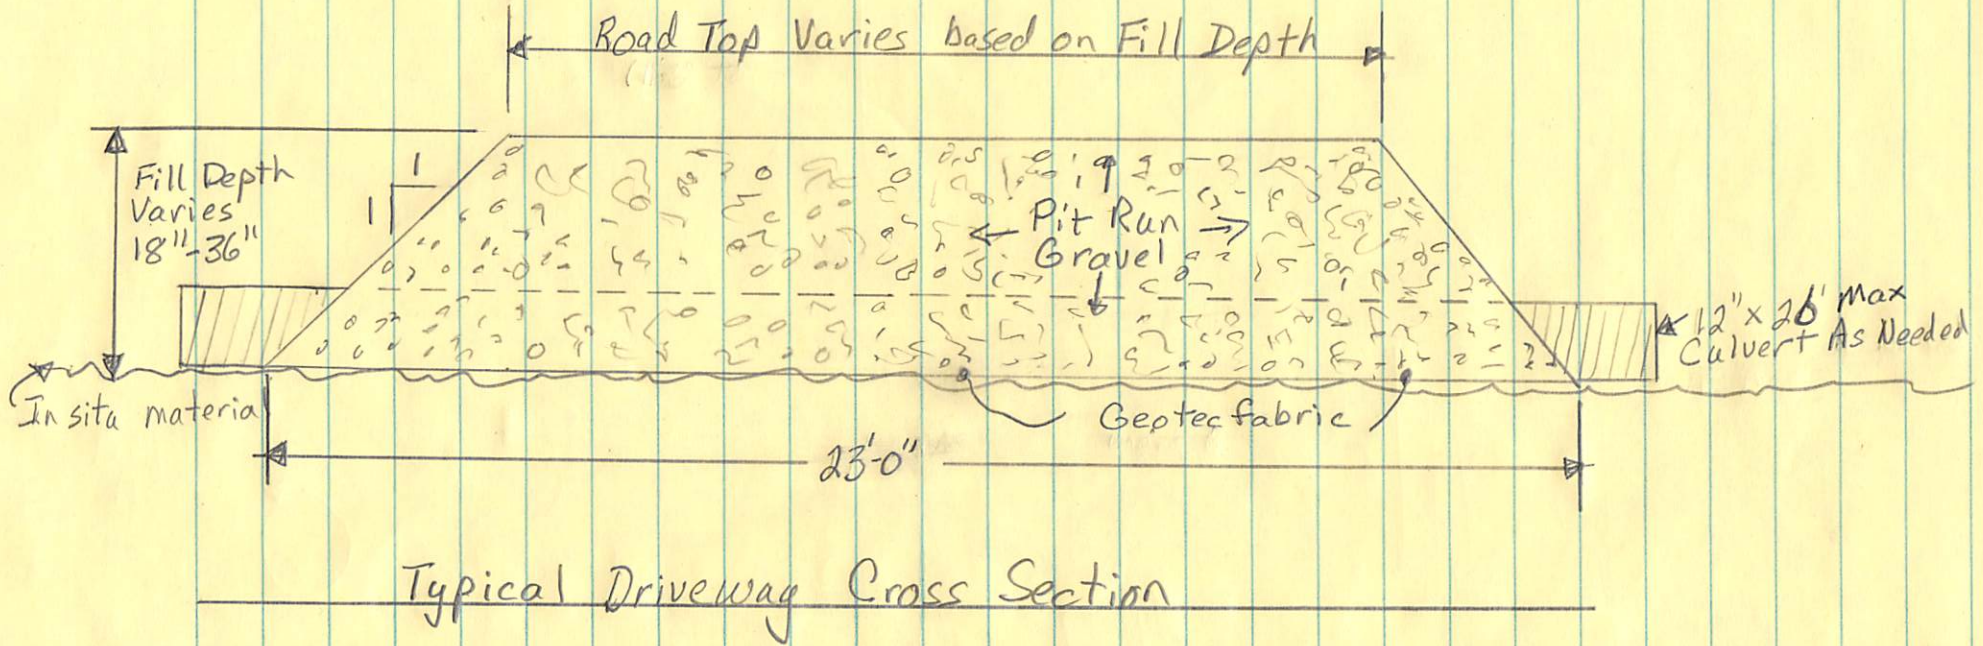 Road Top Varies based on Fill Depth
Fill Depth
Varies
18"-36"
1
1
Pit Run
Gravel
12" x 26' Max
Culvert As Needed
In situ material
Geotec fabric
23'-0"
Typical Driveway Cross Section